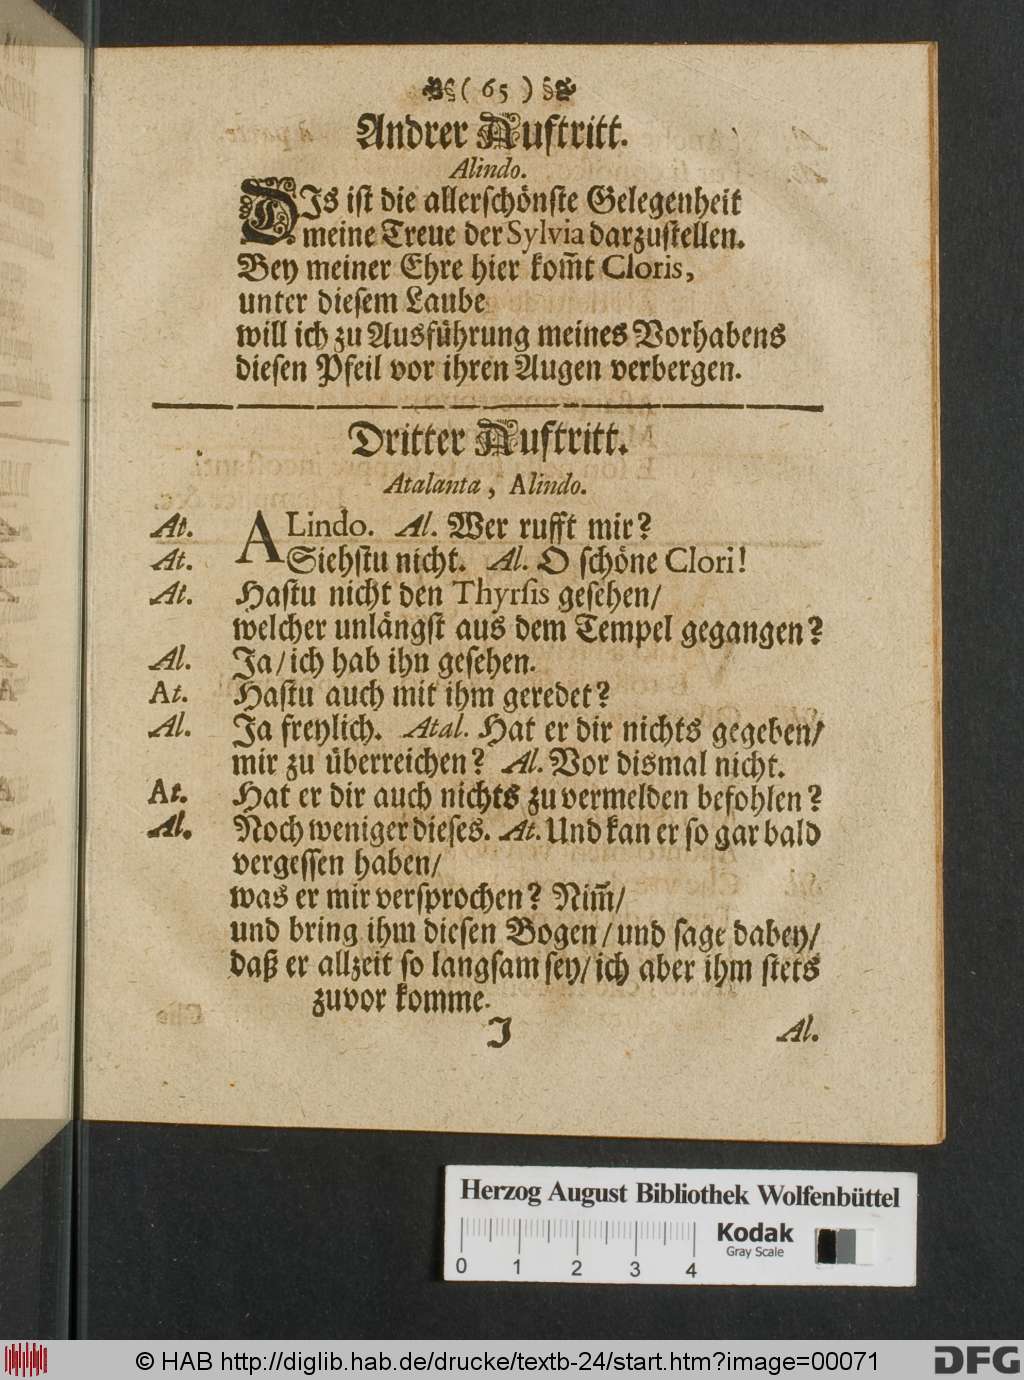 ( 65 )
Andrer Auftritt.
Alindo.
DIs ist die allerschönste Gelegenheit
meine Treue der Sylvia darzustellen.
Bey meiner Ehre hier kom̃t Cloris,
unter diesem Laube
will ich zu Ausführung meines Vorhabens
diesen Pfeil vor ihren Augen verbergen.
Dritter Auftritt.
Atalanta, Alindo.
At. ALindo. Al. Wer rufft mir?
At. Siehstu nicht. Al. O schöne Clori!
At. Hastu nicht den Thyrsis gesehen/
welcher unlängst aus dem Tempel gegangen?
Al. Ja/ ich hab ihn gesehen.
At. Hastu auch mit ihm geredet?
Al. Ja freylich. Atal. Hat er dir nichts gegeben/
mir zu überreichen? Al. Vor dismal nicht.
At. Hat er dir auch nichts zu vermelden befohlen?
Al. Noch weniger dieses. At. Und kan er so gar bald
vergessen haben/
was er mir versprochen? Nim̃/
und bring ihm diesen Bogen/ und sage dabey/
daß er allzeit so langsam sey/ ich aber ihm stets
zuvor komme.
J Al.
Herzog August Bibliothek Wolfenbüttel
Kodak
Gray Scale
0 1 2 3 4
© HAB http://diglib.hab.de/drucke/textb-24/start.htm?image=00071 DFG